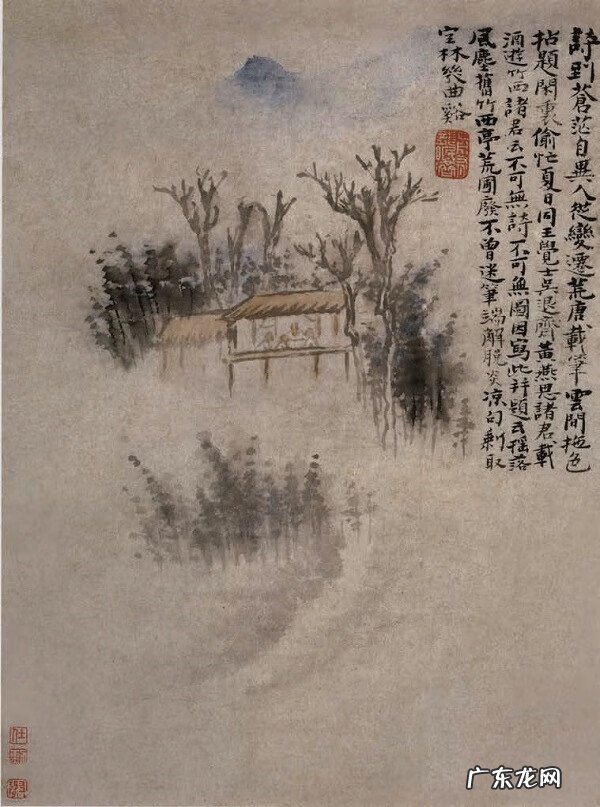 詩到蒼茫自異人悲變遷荒唐載筆雲間拖色
拈題閑裏偷忙夏日同王覺士吳退齋黃燕思諸君載
酒遊竹西諸君云不可無詩不可無圖因寫此并題云搖落
風塵舊竹西亭荒圃廢不曾迷筆端解脫炎涼句剩取
空林幾曲谿
广东龙网